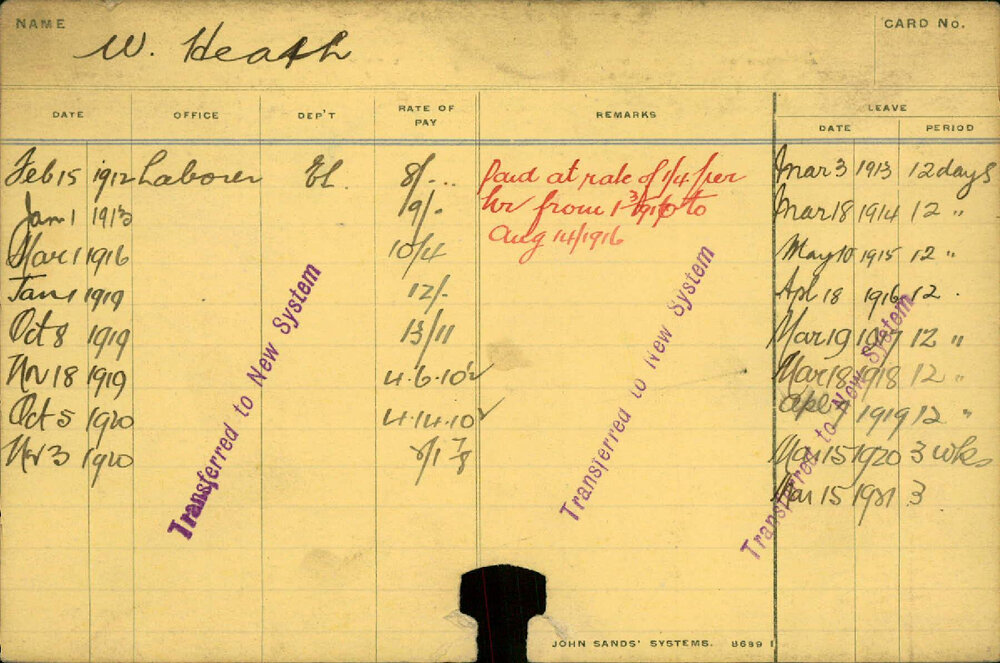 NAME
W. Heath
CARD No.
DATE OFFICE DEP'T RATE OF PAY REMARKS LEAVE
DATE PERIOD
Feb 15 1912 Laborer El. 8/-
Jan 1 1913 9/-
Mar 1 1916 10/4
Jan 1 1919 12/-
Oct 8 1919 13/11
Nov 18 1919 4.6.10
Oct 5 1920 4.14.10
Nov 3 1920
Paid at rate of 1/4 per
hr from to
Aug 14/1916
Mar 3 1913 12 days
Mar 18 1914 12 "
May 10 1915 12 "
Apl 18 1916 12 "
Mar 19 1917 12 "
Mar 18 1918 12 "
Apl 7 1919 12 "
Mar 15 1920 3 wks
Mar 15 1921 3
Transferred to New System
Transferred to New System
Transferred to New System
JOHN SANDS' SYSTEMS. 8699